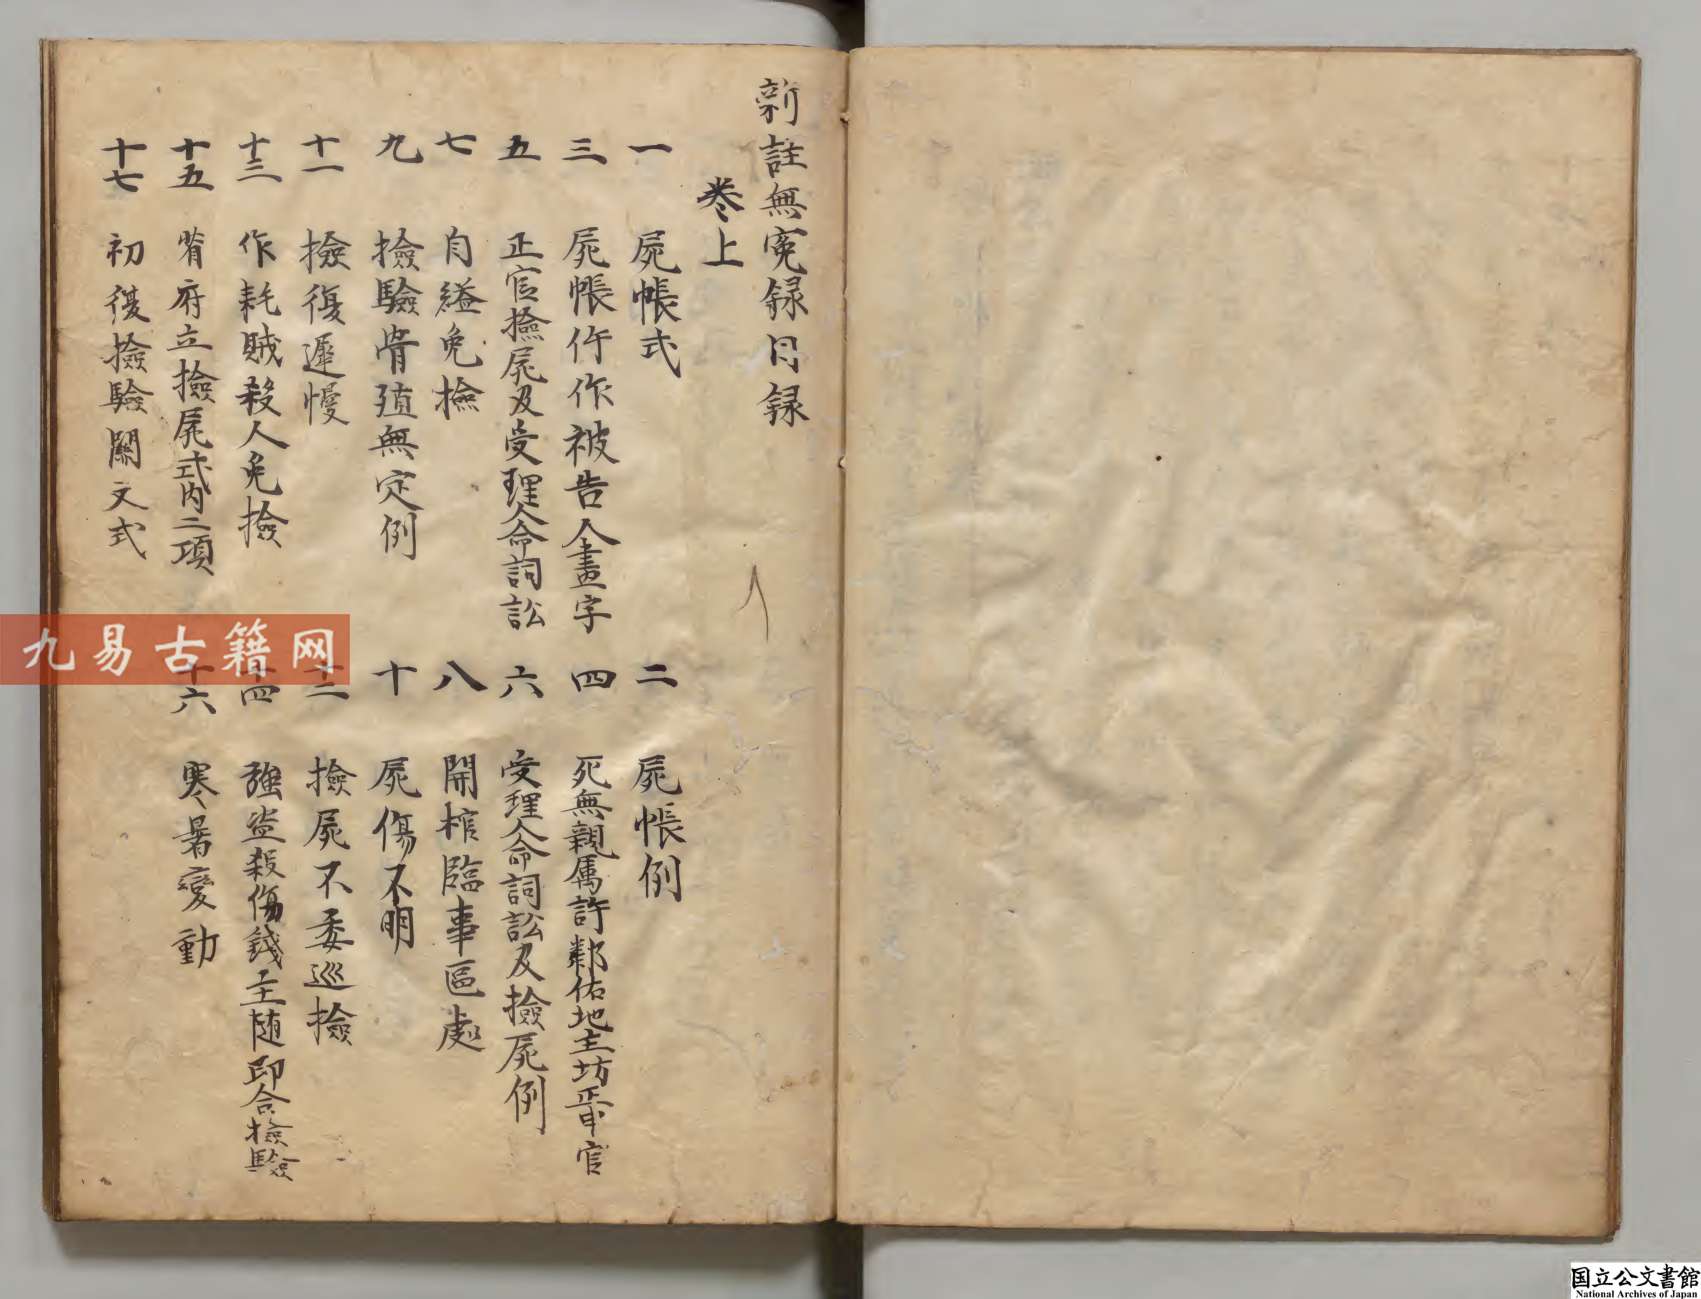 新註無寃録目録
卷上
一 屍帳式 二 屍帳例
三 屍帳仵作被告人畫字 四 死無親属許鄰佑地主坊正申官
五 正官撿屍及受理人命詞訟 六 受理人命詞訟及撿屍例
七 自縊免撿 八 開棺臨事區處
九 撿驗骨殖無定例 十 屍傷不明
十一 撿復遲慢 十二 撿屍不委巡撿
十三 作耗賊殺人免撿 十四 強盗殺傷錢主随即合撿驗
十五 省府立撿屍式内二項 十六 寒暑變動
十七 初復撿驗關文式
九易古籍网
国立公文書館
National Archives of Japan